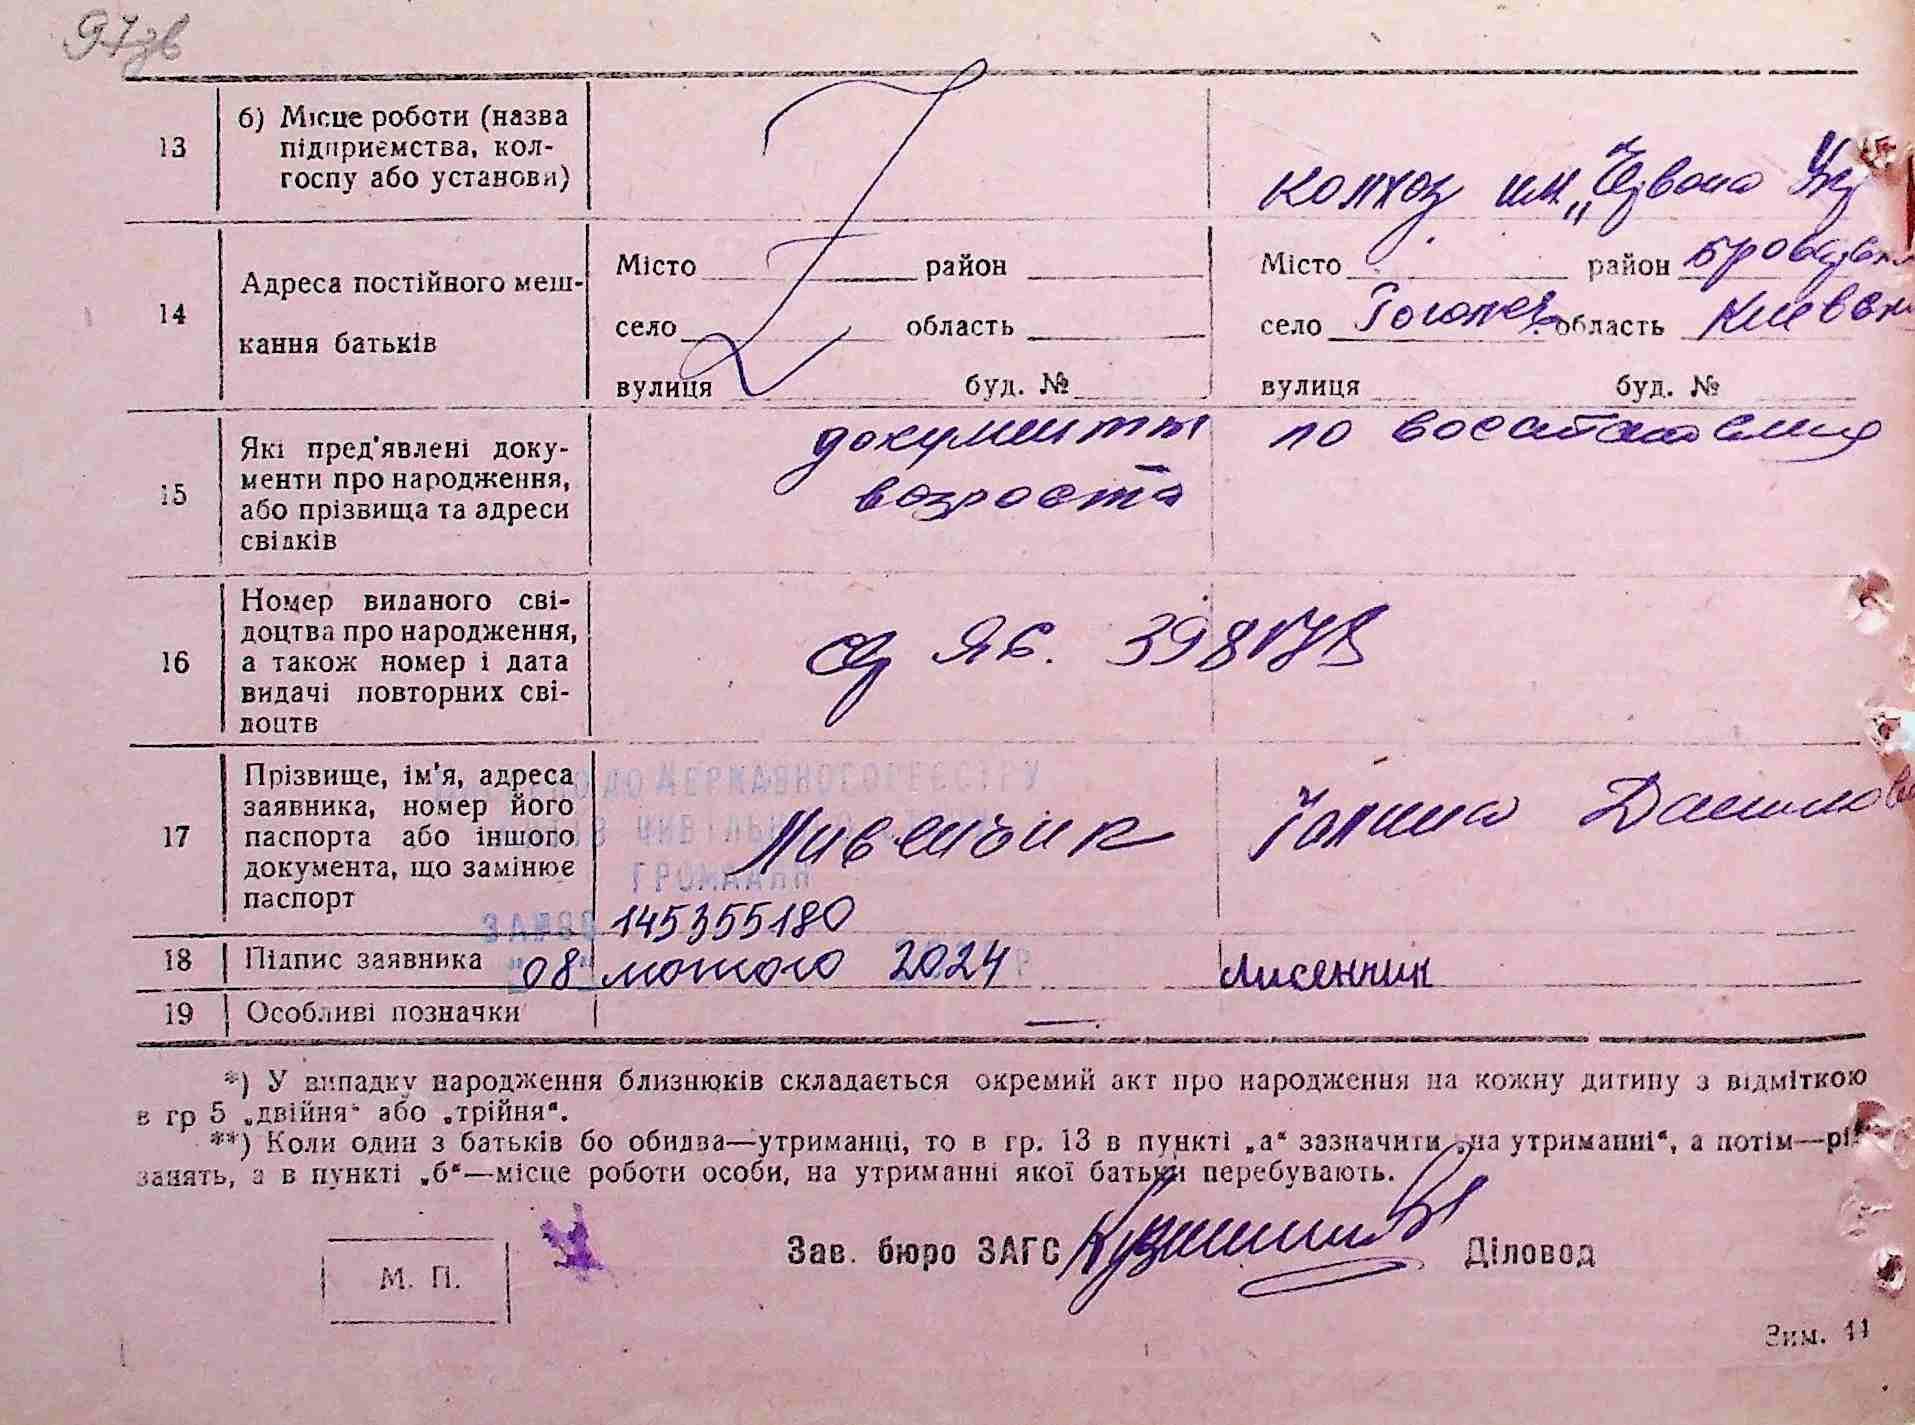 97зв
13
б) Місце роботи (назва
підприємства, кол-
госпу або установи)
колхоз им. „Червона Укр
14
Адреса постійного меш-
кання батьків
Місто район
село область
вулиця буд. №
Місто район Броварск
село Гоголев область Киевск
вулиця буд. №
15
Які пред'явлені доку-
менти про народження,
або прізвища та адреси
свідків
документы по восстановлению
возраста
16
Номер виданого сві-
доцтва про народження,
а також номер і дата
видачі повторних сві-
доцтв
ЯБ. 398
17
Прізвище, ім'я, адреса
заявника, номер його
паспорта або іншого
документа, що замінює
паспорт
ДО ДЕРЖАВНОГО РЕЄСТРУ
ЦИВІЛЬНОГО
ГРОМАДЯН
Галина Данилов
145355180
18
Підпис заявника
"08" лютого 2024 р
19
Особливі позначки
—
*) У випадку народження близнюків складається окремий акт про народження на кожну дитину з відміткою
в гр 5 „двійня“ або „трійня“.
**) Коли один з батьків бо обидва—утриманці, то в гр. 13 в пункті „а“ зазначити „на утриманні“, а потім—рі
занять, а в пункті „б“—місце роботи особи, на утриманні якої батьки перебувають.
Зав. бюро ЗАГС
Діловод
М. П.
Зим. 11